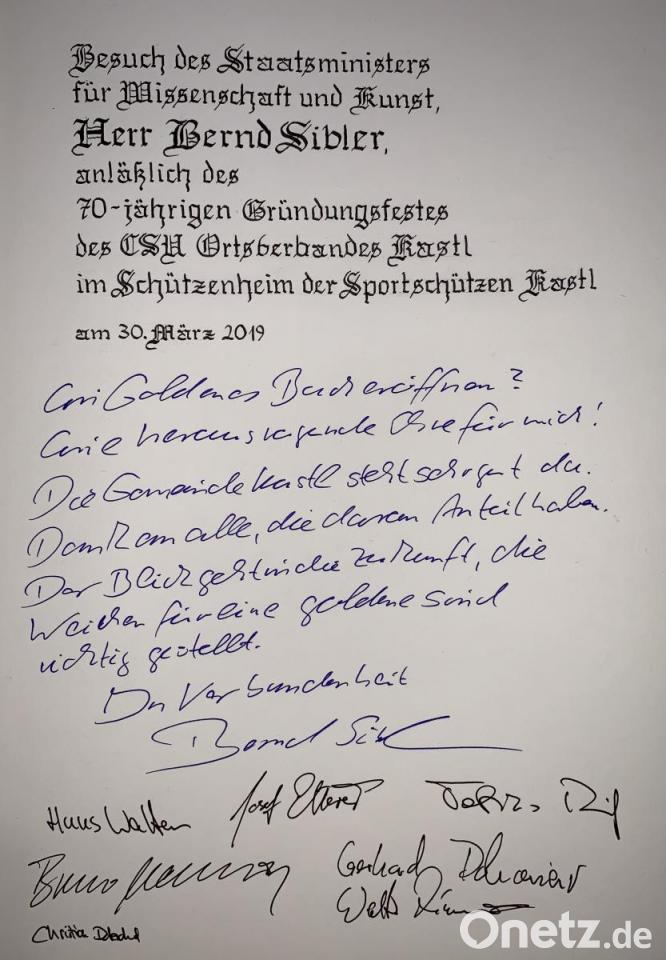 Besuch des Staatsministers
für Wissenschaft und Kunst,
Herr Bernd Sibler,
anläßlich des
70-jährigen Gründungsfestes
des CSU Ortsverbandes Kastl
im Schützenheim der Sportschützen Kastl
am 30. März 2019
Goldenes Buch eröffnen?
Eine herausragende Ehre für mich!
Die Gemeinde Kastl steht sehr gut da.
Dank an alle, die daran Anteil haben.
Der Blick geht in die Zukunft, die
Weichen für eine goldene sind
richtig gestellt.
In Verbundenheit
Bernd Sibler
Hans Walter
Josef
Bruno
Gerhard
Christian
Onetz.de